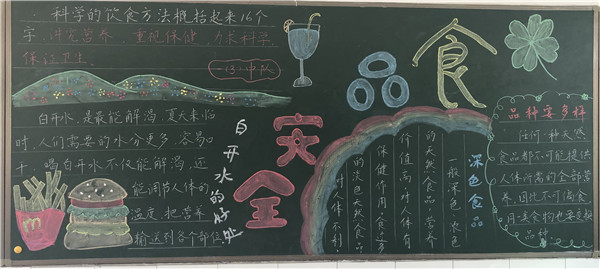 科学的饮食方法概括起来16个
字:讲究营养，重视保健，力求科学，
保证卫生。
中队
白开水，是最能解渴，夏天来临
时，人们需要的水分更多，容易口
干，喝白开水不仅能解渴，还
能调节人体的
温度，把营养
输送到各个部位
白开水的好处
食品
安全
深色食品
一般深色、浓色
的天然食品，营养
价值高，对人体有
保健作用，食过多
的淡色天然食品
对人体不利
品种要多样
任何一种天然
食品都不可能提供
人体所需的全部营
养，因此不可偏食
同一类食物也要更换
品种